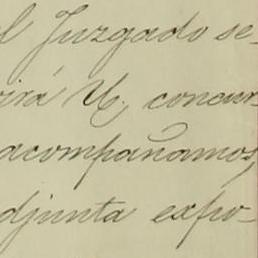 el Juzgado se-
virá U. concur-
acompañamos,
djunta expo-